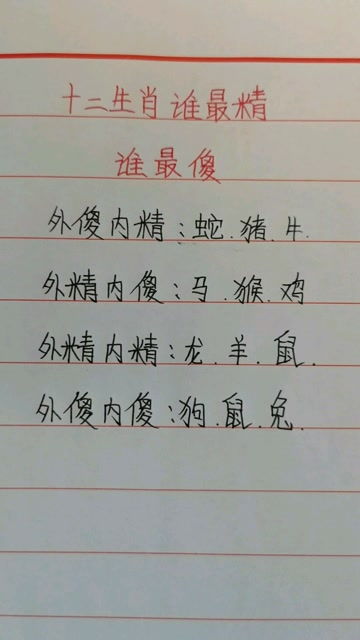 十二生肖谁最精
谁最傻
外傻内精:蛇.猪.牛.
外精内傻:马.猴.鸡
外精内精:龙.羊.鼠.
外傻内傻:狗.鼠.兔.